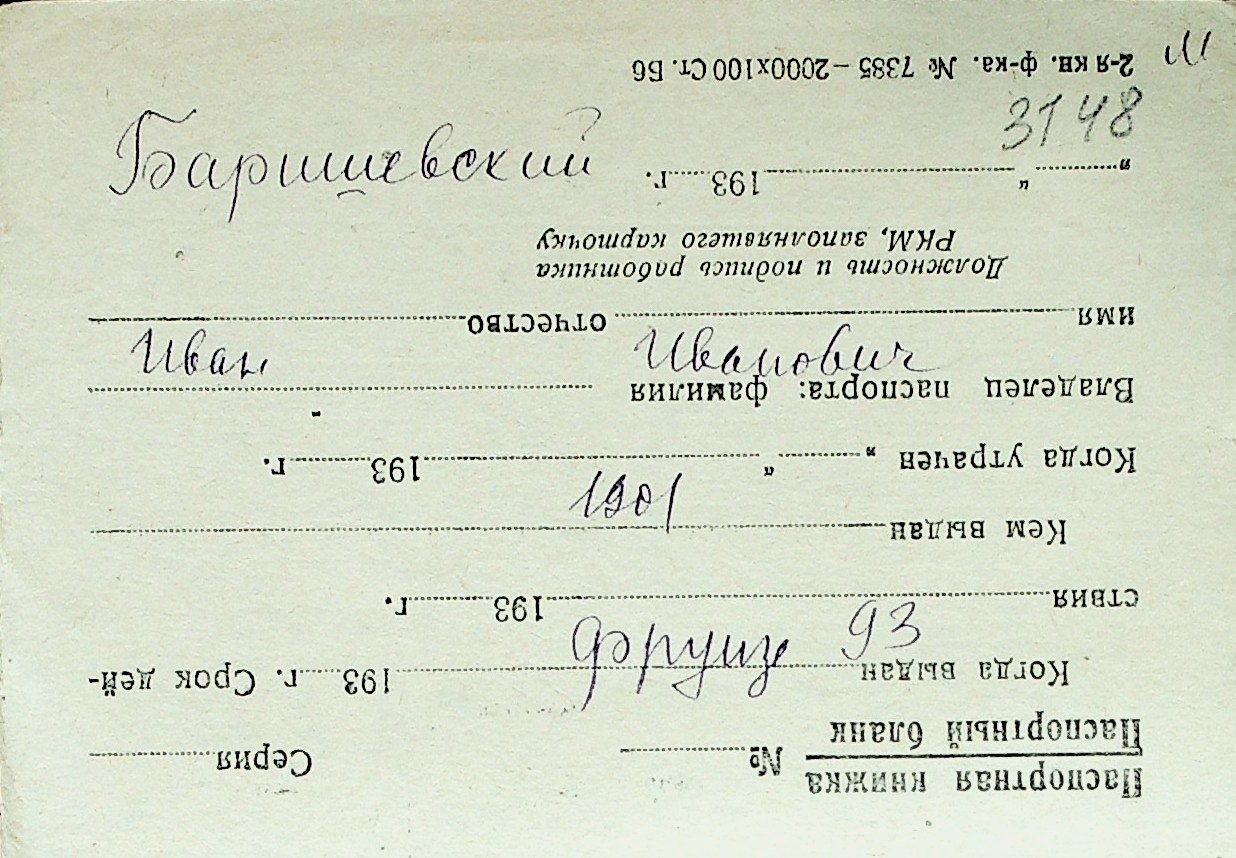 3148
Баришевский
Иван Иванович
1901
Фрунзе 93
Паспортная книжка
Паспортный бланк № Серия
Когда выдан 193 г. Срок дей-
ствия 193 г.
Кем выдан
Когда утрачен „ “ 193 г.
Владелец паспорта: фамилия
имя отчество
Должность и подпись работника
РКМ, заполнявшего карточку
„ “ 193 г.
2-я кн. ф-ка. № 7385 – 2000х100 Ст. Б6